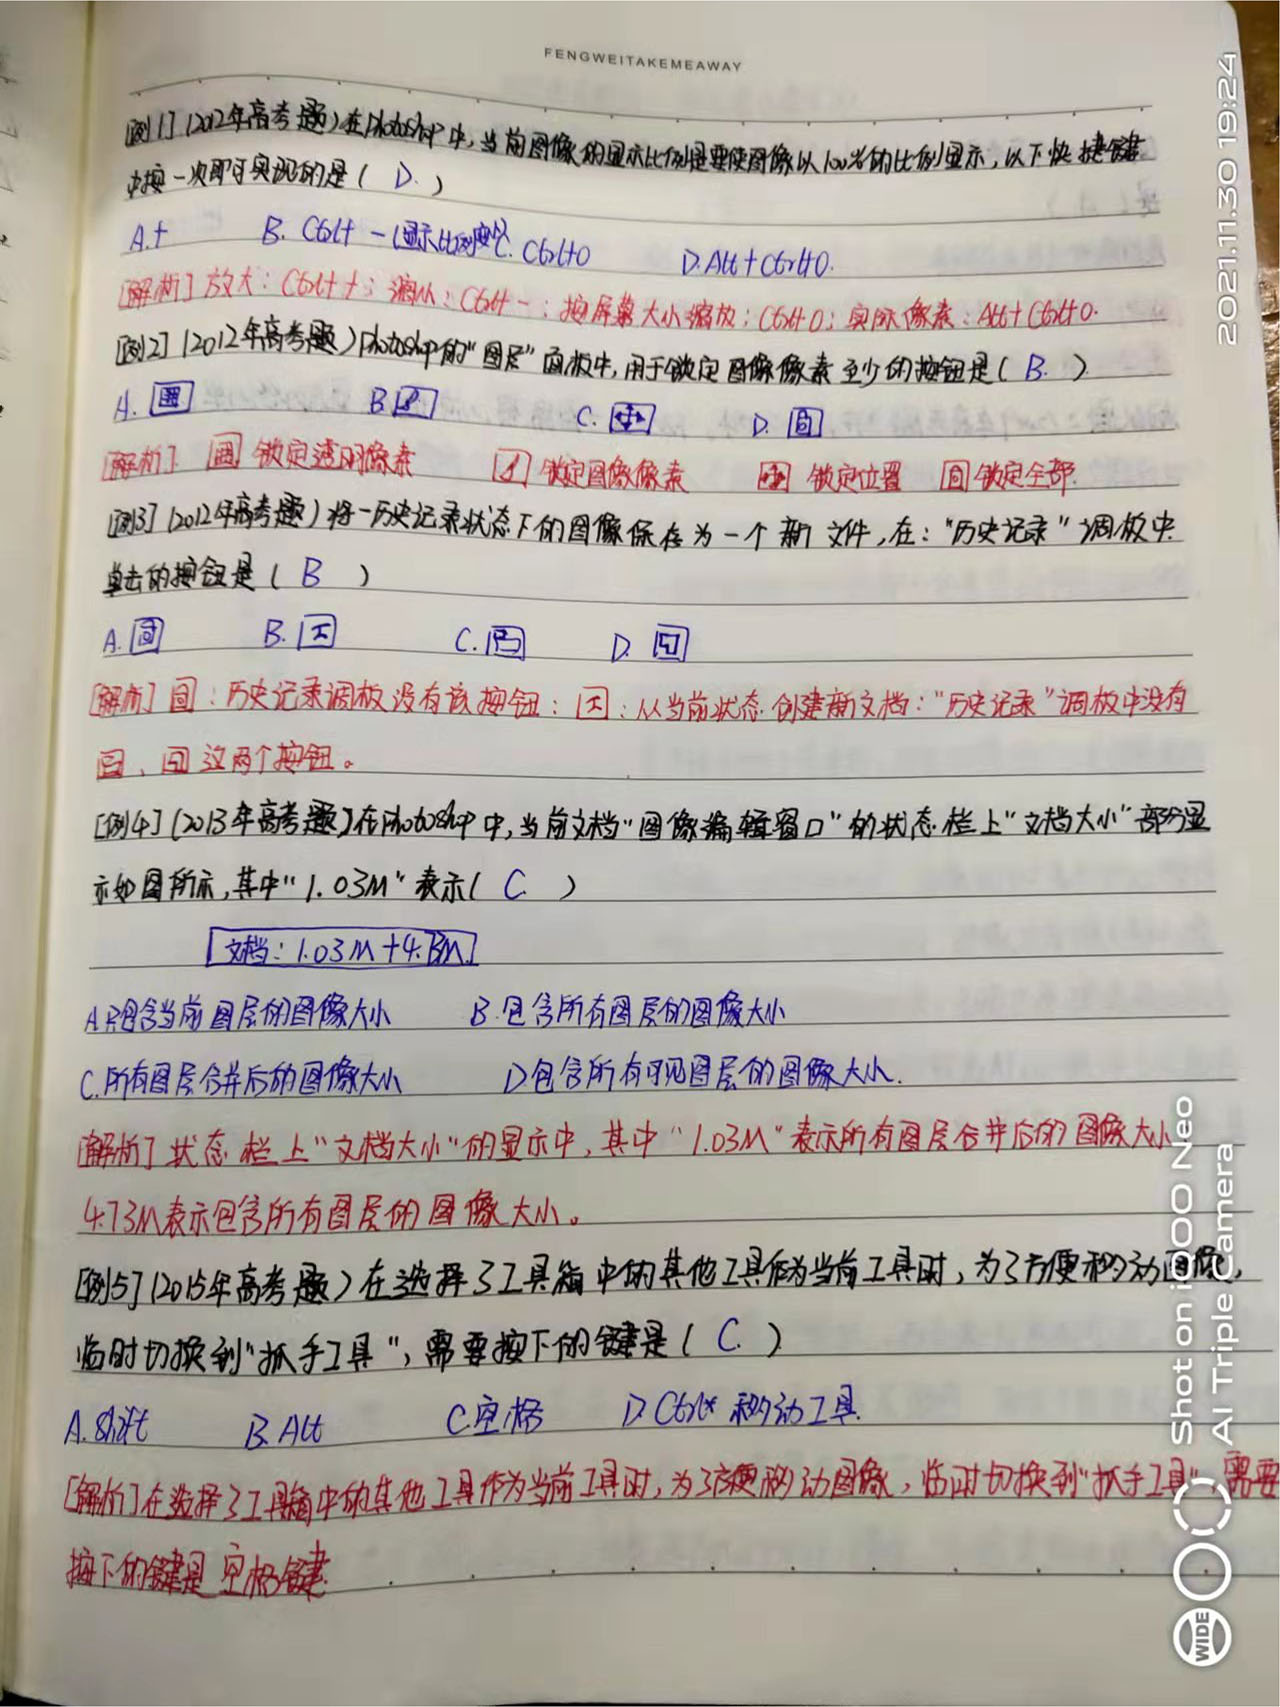 FENGWEITAKEMEAWAY
[例1](2012年高考题)在Photoshop中,当前图像的显示比例是要使图像以100%的比例显示,以下快捷键
中按一次即可实现的是( D. )
A.+ B. Ctrl+ -(显示比例 C. Ctrl+0 D.Alt+Ctrl+0.
[解析]放大:Ctrl+ +;缩小:Ctrl+ -;按屏幕大小缩放:Ctrl+0;实际像素:Alt+Ctrl+0.
[例2](2012年高考题)Photoshop的"图层"面板中,用于锁定图像像素至少的按钮是( B. )
A. B C. D.
[解析] 锁定透明像素 锁定图像像素 锁定位置 锁定全部.
[例3](2012年高考题)将一历史记录状态下的图像保存为一个新文件,在:"历史记录"调板中
单击的按钮是( B )
A. B. C. D.
[解析] :历史记录调板没有该按钮: :从当前状态创建新文档:"历史记录"调板中没有
、 这两个按钮。
[例4](2013年高考题)在Photoshop中,当前文档"图像编辑窗口"的状态栏上"文档大小"部分显
示如图所示,其中"1.03M"表示( C )
文档:1.03M+4.
A.只包含当前图层的图像大小 B.包含所有图层的图像大小
C.所有图层合并后的图像大小 D包含所有可见图层的图像大小.
[解析]状态栏上"文档大小"的显示中,其中"1.03M"表示所有图层合并后的图像大小
4.73M表示包含所有图层的图像大小。
[例5](2015年高考题)在选择了工具箱中的其他工具作为当前工具时,为了方便移动图像,
临时切换到"抓手工具",需要按下的键是( C. )
A.shift B.Alt C.空格 D.Ctrl+移动工具.
[解析]在选择了工具箱中的其他工具作为当前工具时,为了方便移动图像,临时切换到"抓手工具",需要
按下的键是空格键.
2021.11.30 19:24
Shot on iQOO Neo
AI Triple Camera
WIDE